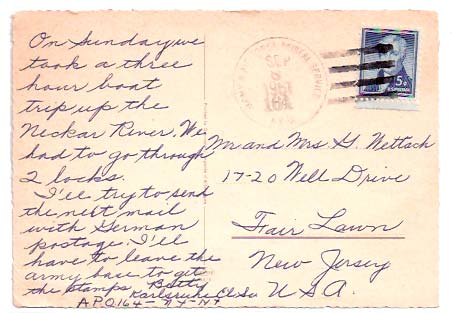 On Sunday we
took a three
hour boat
trip up the
Neckar River. We
had to go through
2 locks.
I'll try to send
the next mail
with German
postage. I'll
have to leave the
army base to get
the stamps. Betty
Karlsruhe
A.P.O. 164 - N.Y. - N.Y.
SEP
5¢
Mr and Mrs G. Wettach
17-20 Well Drive
Fair Lawn
New Jersey
U.S.A.